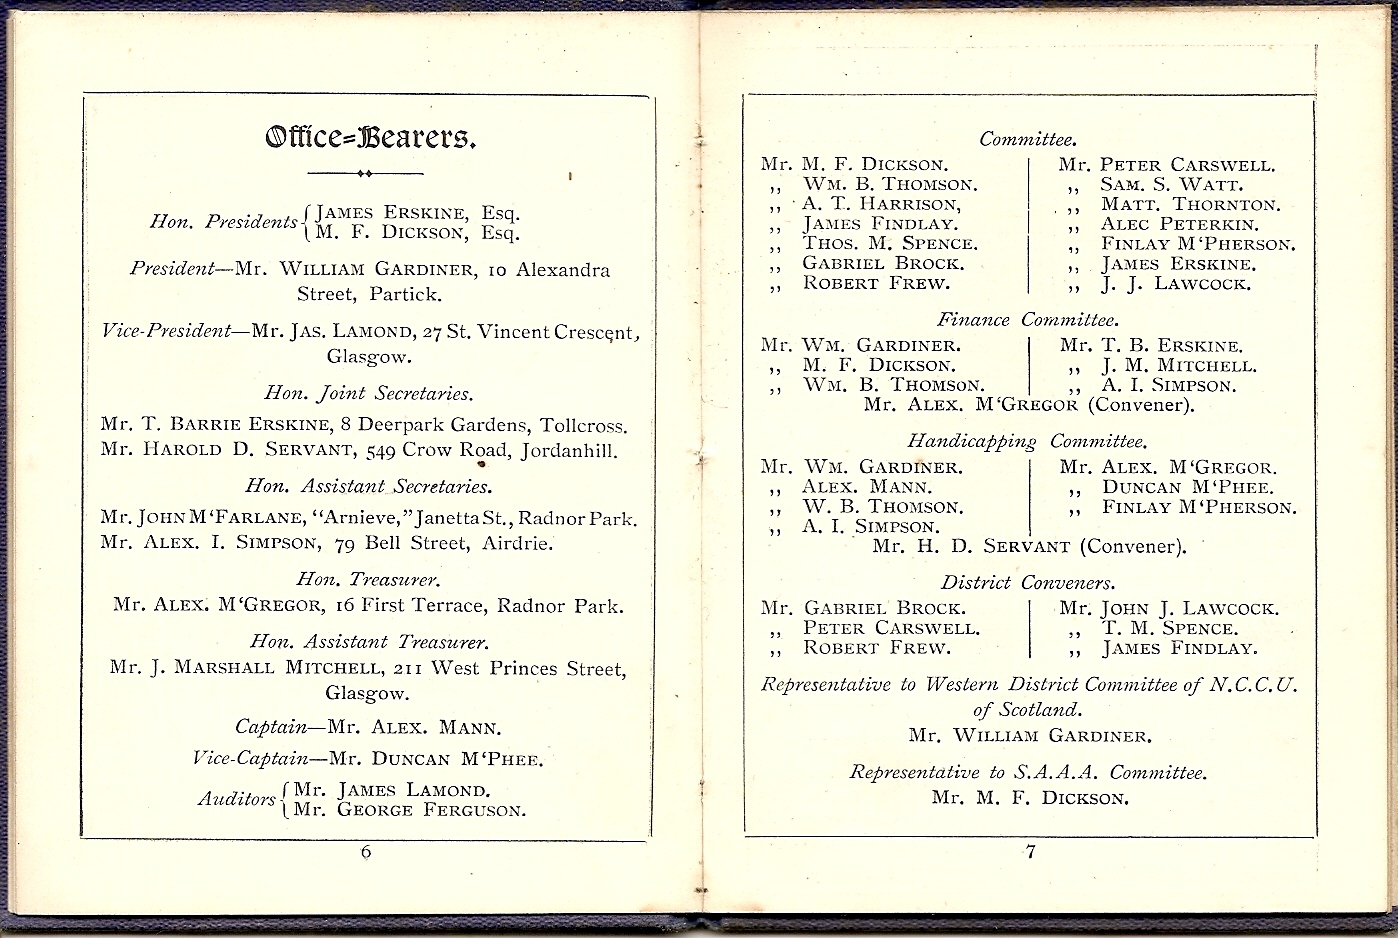 Office=Bearers.
Hon. Presidents { JAMES ERSKINE, Esq.
M. F. DICKSON, Esq.
President—Mr. WILLIAM GARDINER, 10 Alexandra
Street, Partick.
Vice-President—Mr. JAS. LAMOND, 27 St. Vincent Crescent,
Glasgow.
Hon. Joint Secretaries.
Mr. T. BARRIE ERSKINE, 8 Deerpark Gardens, Tollcross.
Mr. HAROLD D. SERVANT, 549 Crow Road, Jordanhill.
Hon. Assistant Secretaries.
Mr. JOHN M‘FARLANE, “Arnieve,” Janetta St., Radnor Park.
Mr. ALEX. I. SIMPSON, 79 Bell Street, Airdrie.
Hon. Treasurer.
Mr. ALEX. M‘GREGOR, 16 First Terrace, Radnor Park.
Hon. Assistant Treasurer.
Mr. J. MARSHALL MITCHELL, 211 West Princes Street,
Glasgow.
Captain—Mr. ALEX. MANN.
Vice-Captain—Mr. DUNCAN M‘PHEE.
Auditors { Mr. JAMES LAMOND.
Mr. GEORGE FERGUSON.
6
Committee.
Mr. M. F. DICKSON. Mr. PETER CARSWELL.
,, WM. B. THOMSON. ,, SAM. S. WATT.
,, A. T. HARRISON, ,, MATT. THORNTON.
,, JAMES FINDLAY. ,, ALEC PETERKIN.
,, THOS. M. SPENCE. ,, FINLAY M‘PHERSON.
,, GABRIEL BROCK. ,, JAMES ERSKINE.
,, ROBERT FREW. ,, J. J. LAWCOCK.
Finance Committee.
Mr. WM. GARDINER. Mr. T. B. ERSKINE.
,, M. F. DICKSON. ,, J. M. MITCHELL.
,, WM. B. THOMSON. ,, A. I. SIMPSON.
Mr. ALEX. M‘GREGOR (Convener).
Handicapping Committee.
Mr. WM. GARDINER. Mr. ALEX. M‘GREGOR.
,, ALEX. MANN. ,, DUNCAN M‘PHEE.
,, W. B. THOMSON. ,, FINLAY M‘PHERSON.
,, A. I. SIMPSON.
Mr. H. D. SERVANT (Convener).
District Conveners.
Mr. GABRIEL BROCK. Mr. JOHN J. LAWCOCK.
,, PETER CARSWELL. ,, T. M. SPENCE.
,, ROBERT FREW. ,, JAMES FINDLAY.
Representative to Western District Committee of N.C.C.U.
of Scotland.
Mr. WILLIAM GARDINER.
Representative to S.A.A.A. Committee.
Mr. M. F. DICKSON.
7